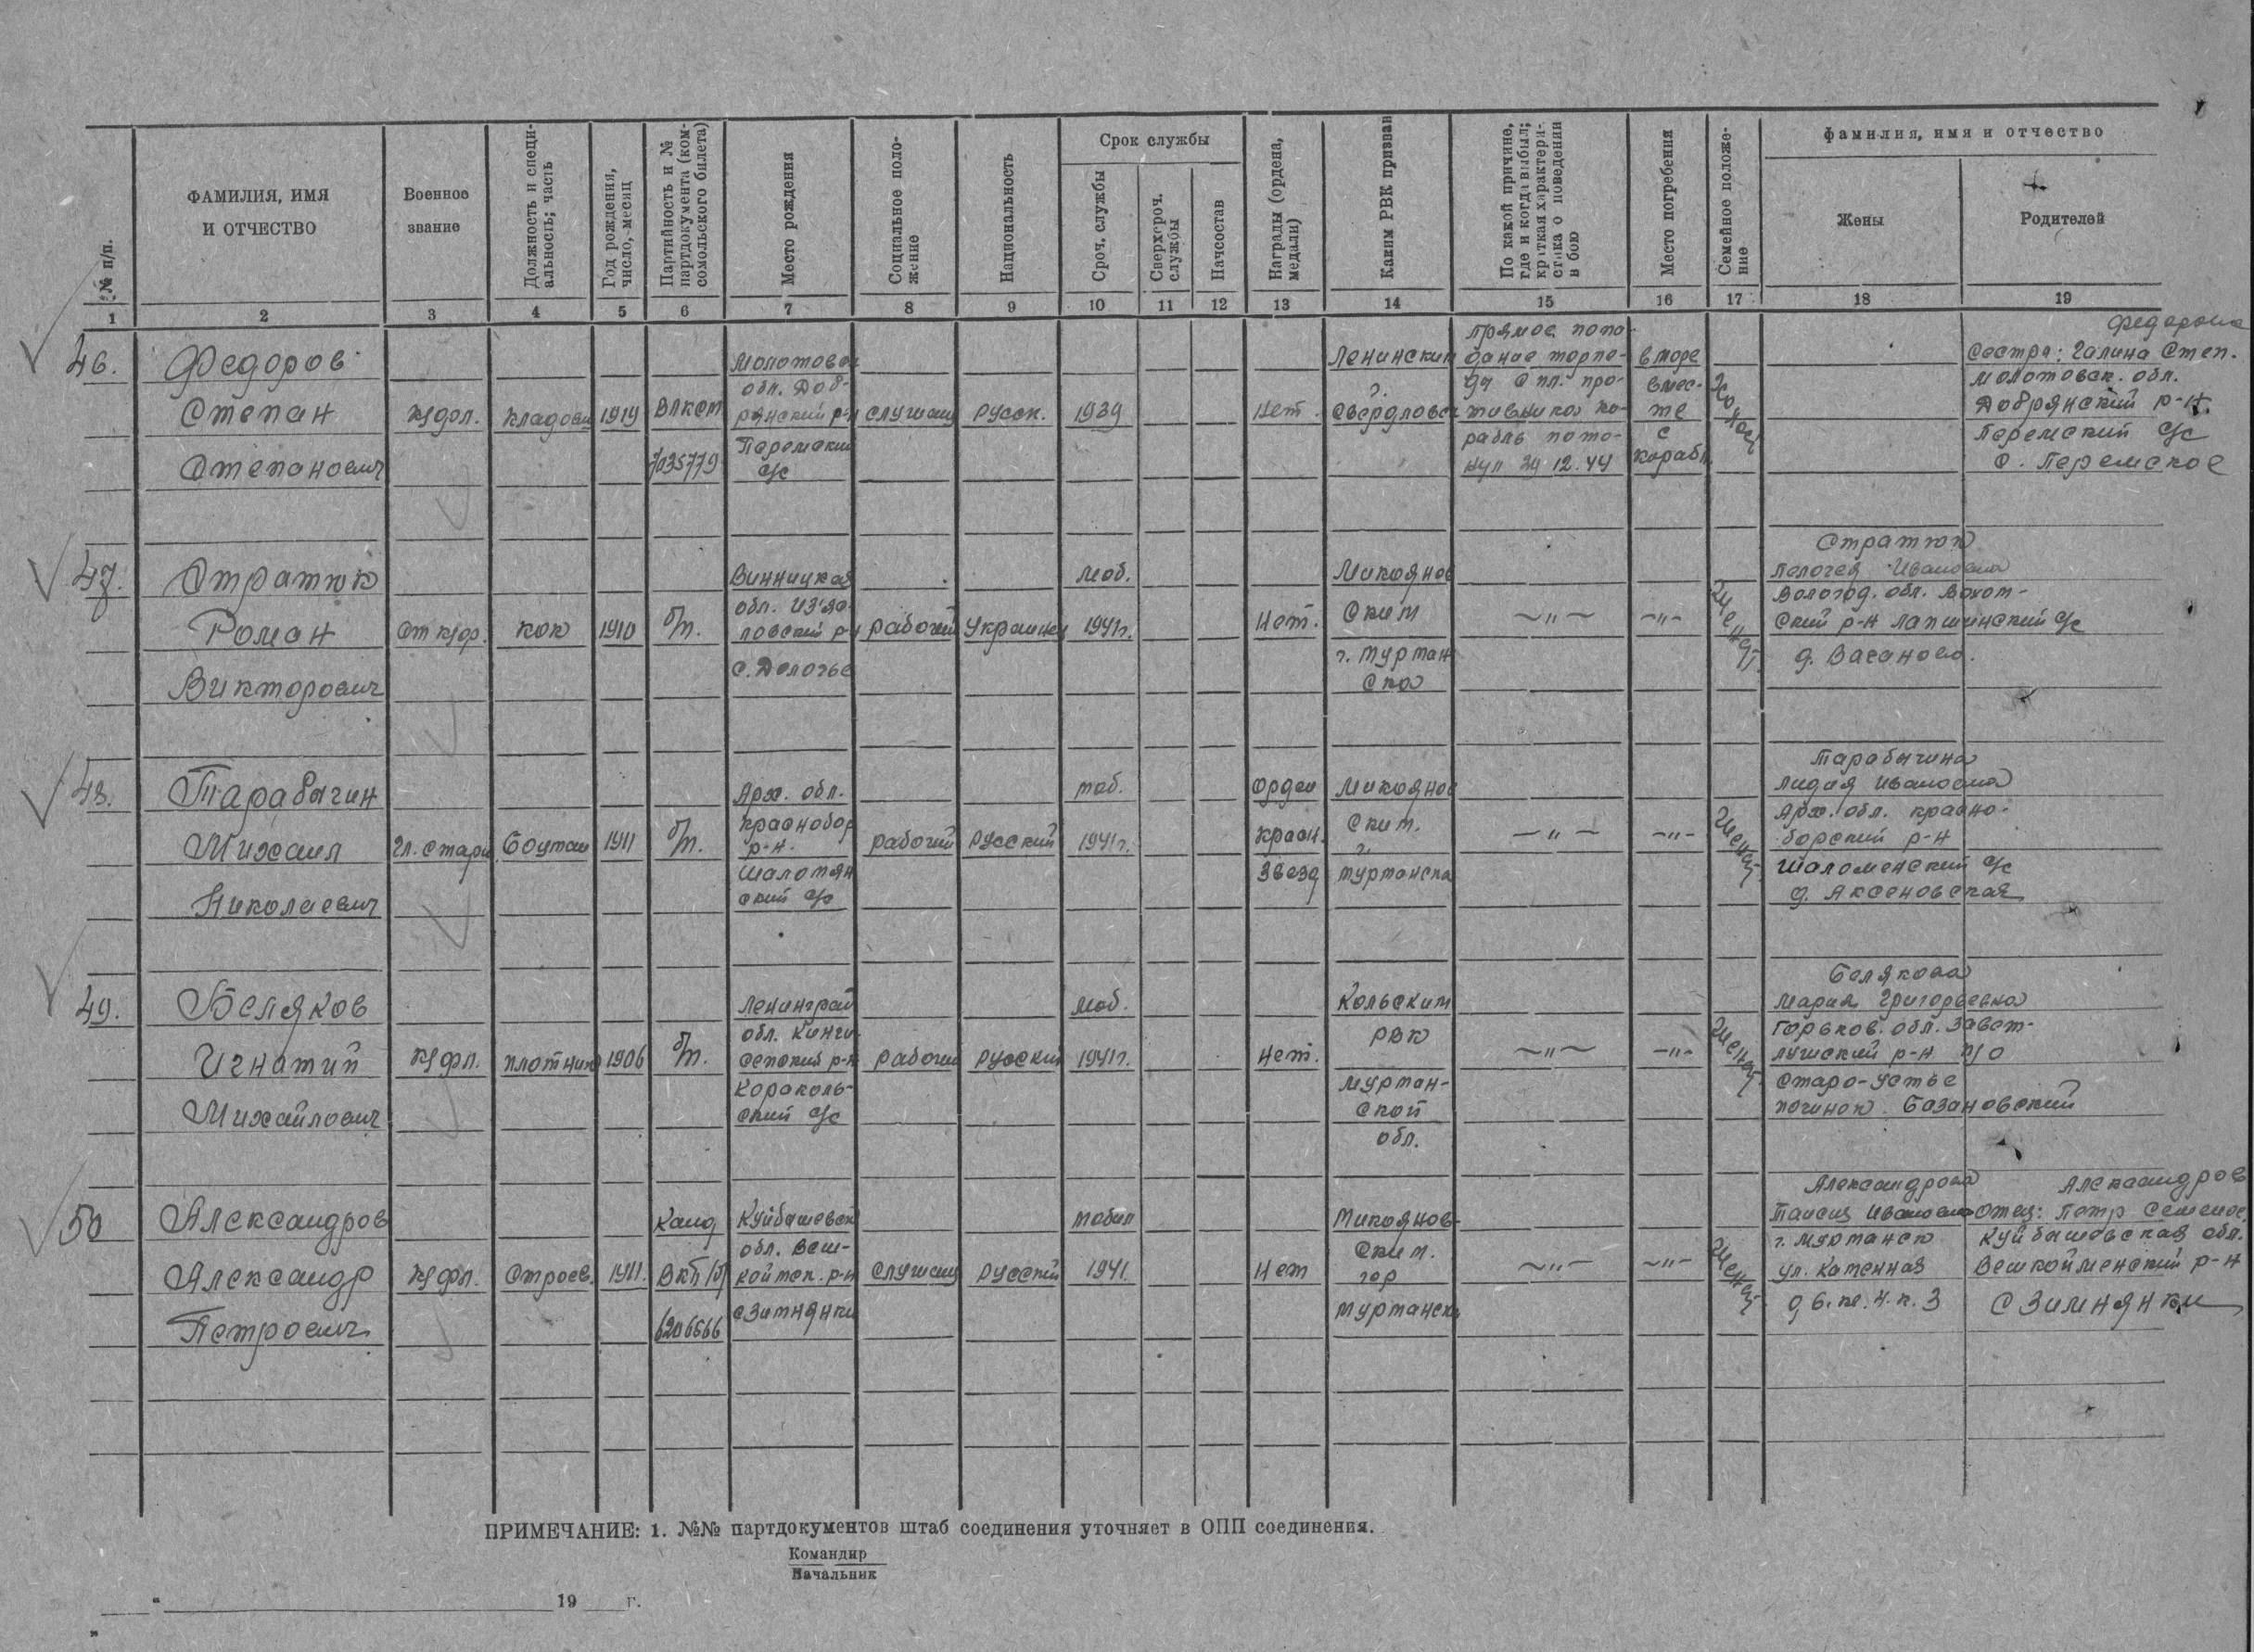 № п/п.
ФАМИЛИЯ, ИМЯ
И ОТЧЕСТВО
Военное
звание
Должность и специ-
альность; часть
Год рождения,
число, месяц
Партийность и №
партдокумента (ком-
сомольского билета)
Место рождения
Социальное поло-
жение
Национальность
Срок службы
Сроч. службы
Сверхсроч.
службы
Начсостав
Награды (ордена,
медали)
Каким РВК призван
По какой причине,
где и когда выбыл;
краткая характери-
стика о поведении
в бою
Место погребения
Семейное положе-
ние
фамилия, имя и отчество
Жены
Родителей
1 2 3 4 5 6 7 8 9 10 11 12 13 14 15 16 17 18 19
46.
Федоров
Степан
Степанович
кфл.
кладовщ
1919
ВЛКСМ
7035779
Молотовск
обл. Доб-
рянский р-н
Перемский
с/с
служащ
русск.
1939
нет.
Ленинским
г.
Свердловск
прямое попа-
дание торпе-
ды с пл. про-
тивника ко-
рабль пото-
нул 24 12.44
в море
вмес-
те
с
корабл.
Холост
Федорова
Сестра: Галина Степ.
Молотовск. обл.
Добрянский р-н.
Перемский с/с
с. Перемское
47.
Стратюк
Роман
Викторович
ст кфр.
кок
1910
б/п.
Винницкая
обл. Изяс-
ловский р-н
рабочий
украинец
моб.
1941г.
нет.
Микоянов
ским
г. Мурман
ска
—"—
—"—
Женат.
Стратюк
Пелагея Ивановна
Вологод. обл. Вохом-
ский р-н Лапшинский с/с
д. Васаново.
48.
Тарабычин
Михаил
Николаевич
Гл. стари
Боцман
1911
б/п.
Арх. обл.
Краснобор
р-н.
Шаломян
ский с/с
рабочий
русский
моб.
1941г.
Орден
красн.
звезд
Микоянов
ским.
г.
Мурманска
—"—
—"—
Женат.
Тарабычина
Лидия Ивановна
Арх. обл. красно-
борский р-н
Шаломенский с/с
д. Аксеновская
49.
Беляков
Игнатий
Михайлович
кфл.
плотник
1906
б/п.
Ленинград
обл. Кинги-
сепский р-н
Караколь-
ский с/с
рабочий
русский
моб.
1941г.
нет.
Кольским
РВК
Мурман-
ской
обл.
—"—
—"—
Женат.
Белякова
Мария Григорьевна
Горьков. обл. Завет-
лужский р-н п/о
Старо-Устье
починок Базановский
50
Александров
Александр
Петрович
кфл.
Строев.
1911.
Канд
ВКП/б/
6206566
Куйбышевск
обл. Веш-
койм�ск. р-н
с Зимнянки
служащ
русский
мобил
1941.
нет
Микоянов-
ским.
гор
Мурманска
—"—
—"—
Женат.
Александрова
Таисия Ивановна
г. Мурманск
ул. Каменная
Александров
Отец: Петр Семенов.
Куйбышевская обл.
Вешкойменский р-н
с Зимнянки
ПРИМЕЧАНИЕ: 1. №№ партдокументов штаб соединения уточняет в ОПП соединения.
Командир
Начальник
" 19 г.